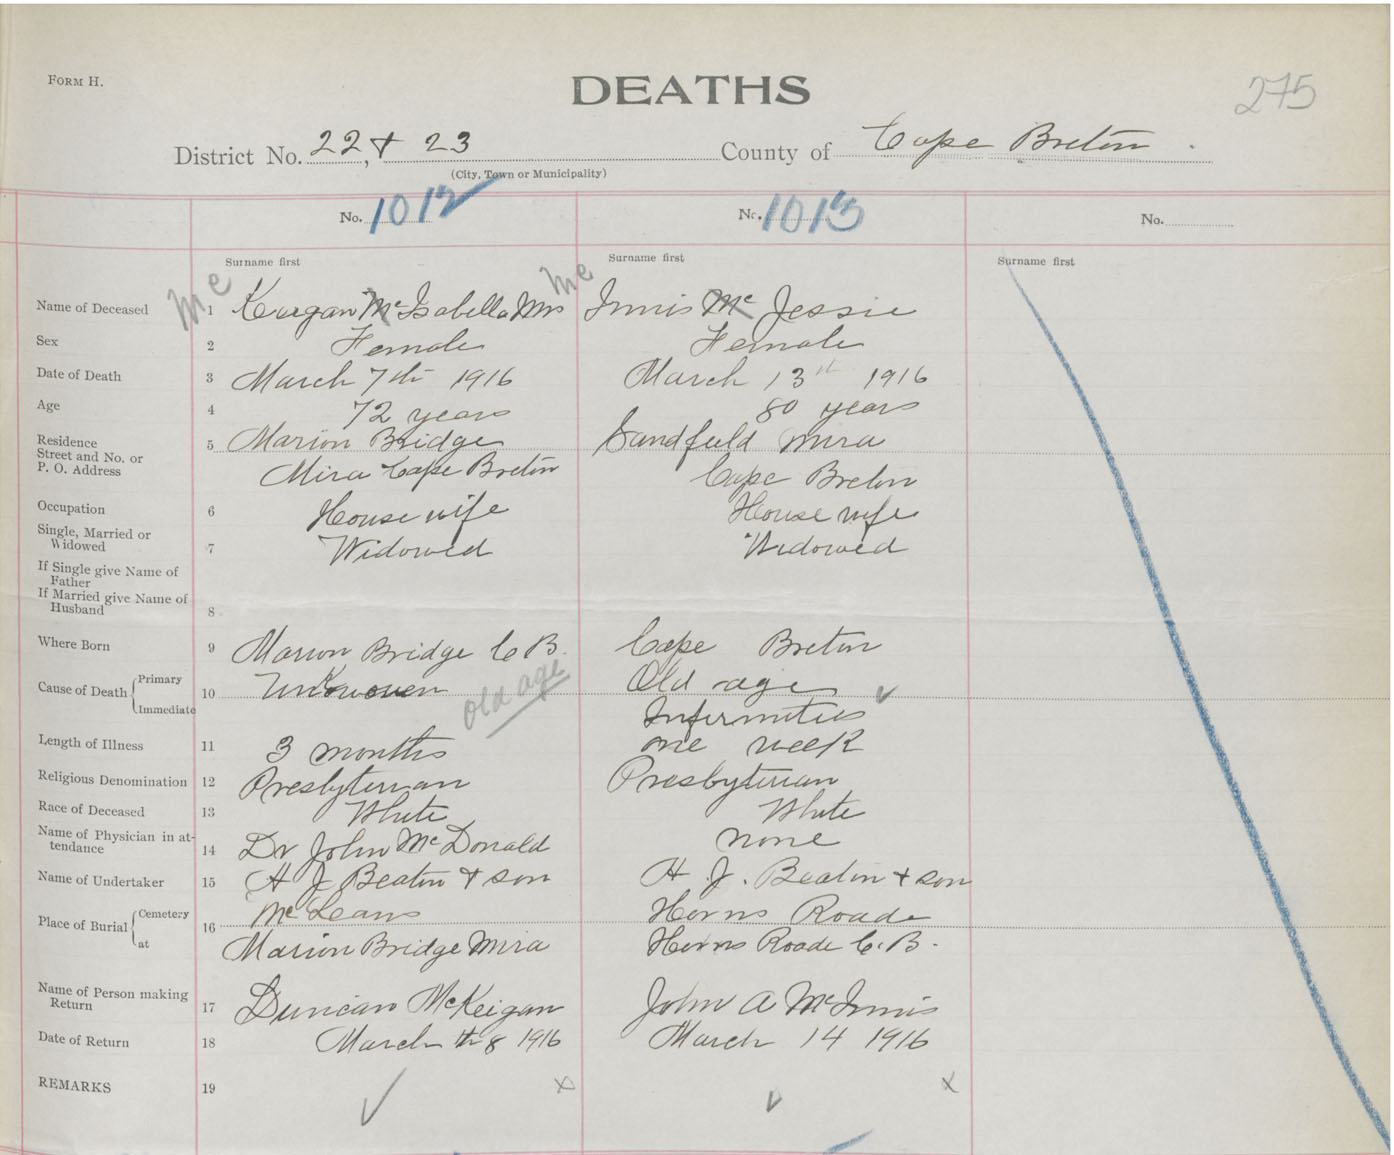 FORM H.
DEATHS
275
District No. 22, + 23 County of Cape Breton.
(City, Town or Municipality)
No. 1012 No. 1013 No.
Surname first Surname first Surname first
Mc Mc
Name of Deceased 1 Keegan Mc Isabella Mrs Innis Mc Jessie
Sex 2 Female Female
Date of Death 3 March 7th 1916 March 13th 1916
Age 4 72 years 80 years
Residence 5 Marion Bridge Sandfield Mira
Street and No. or
P. O. Address Mira Cape Breton Cape Breton
Occupation 6 House wife House wife
Single, Married or
Widowed 7 Widowed Widowed
If Single give Name of
Father
If Married give Name of
Husband 8
Where Born 9 Marion Bridge C B. Cape Breton
Cause of Death Primary 10 Unknowen old age Old age
Immediate Infirmities
Length of Illness 11 3 months one week
Religious Denomination 12 Presbyterian Presbyterian
Race of Deceased 13 White White
Name of Physician in at-
tendance 14 Dr John McDonald none
Name of Undertaker 15 H J Beaton + son H. J. Beaton + son
Place of Burial Cemetery 16 McLeans Horns Roade
at Marion Bridge Mira Horns Roade C. B.
Name of Person making
Return 17 Duncan McKeigan John A McInnis
Date of Return 18 March th 8 1916 March 14 1916
REMARKS 19